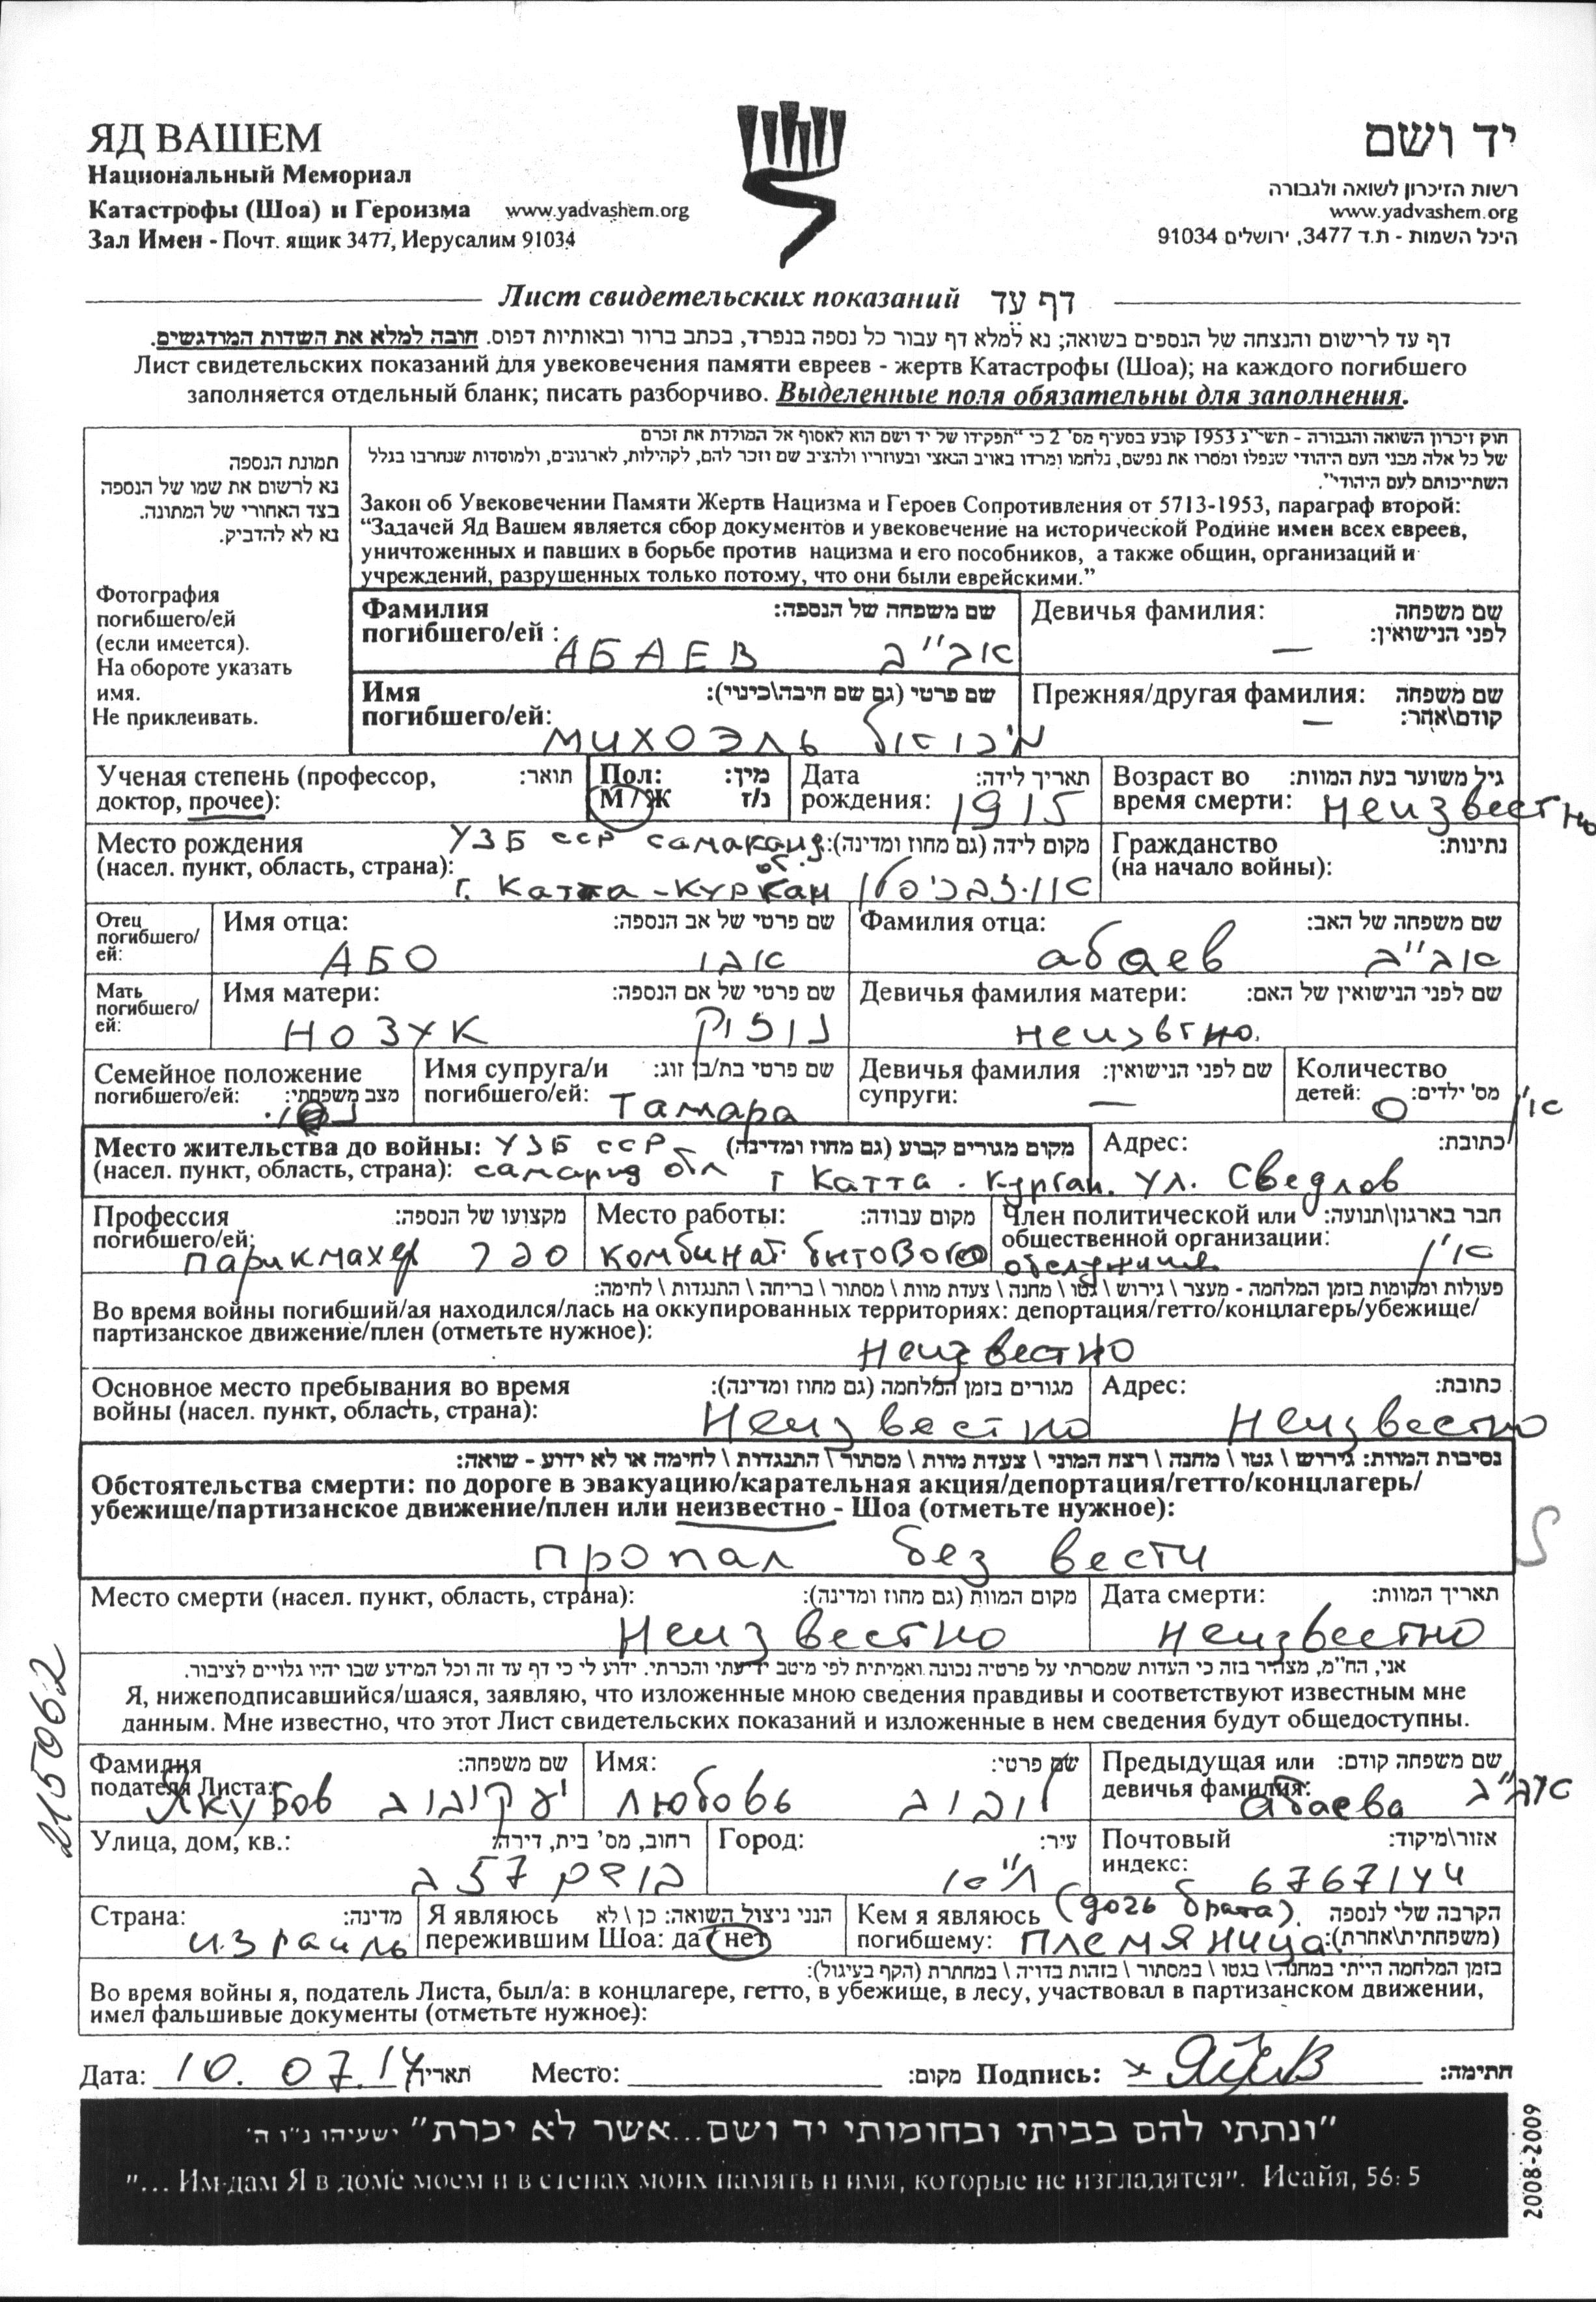 ЯД ВАШЕМ
יד ושם
Национальный Мемориал
Катастрофы (Шоа) и Героизма www.yadvashem.org
Зал Имен - Почт. ящик 3477, Иерусалим 91034
רשות הזיכרון לשואה ולגבורה
www.yadvashem.org
היכל השמות - ת.ד 3477, ירושלים 91034
Лист свидетельских показаний דף עד
דף עד לרישום והנצחה של הנספים בשואה; נא למלא דף עבור כל נספה בנפרד, בכתב ברור ובאותיות דפוס. חובה למלא את השדות המודגשים.
Лист свидетельских показаний для увековечения памяти евреев - жертв Катастрофы (Шоа); на каждого погибшего
заполняется отдельный бланк; писать разборчиво. Выделенные поля обязательны для заполнения.
תמונת הנספה
נא לרשום את שמו של הנספה
בצד האחורי של המתונה.
נא לא להדביק.
Фотография
погибшего/ей
(если имеется).
На обороте указать
имя.
Не приклеивать.
חוק זיכרון השואה והגבורה - תשי"ג 1953 קובע בסעיף מס' 2 כי "תפקידו של יד ושם הוא לאסוף אל המולדת את זכרם
של כל אלה מבני העם היהודי שנפלו ומסרו את נפשם, נלחמו ומרדו באויב הנאצי ובעוזריו ולהציב שם וזכר להם, לקהילות, לארגונים, ולמוסדות שנחרבו בגלל
השתייכותם לעם היהודי".
Закон об Увековечении Памяти Жертв Нацизма и Героев Сопротивления от 5713-1953, параграф второй:
“Задачей Яд Вашем является сбор документов и увековечение на исторической Родине имен всех евреев,
уничтоженных и павших в борьбе против нацизма и его пособников, а также общин, организаций и
учреждений, разрушенных только потому, что они были еврейскими.”
Фамилия שם משפחה של הנספה:
погибшего/ей : АБАЕВ אבייב
Девичья фамилия: שם משפחה
לפני הנישואין: —
Имя שם פרטי (גם שם חיבה\כינוי):
погибшего/ей: МИХОЭЛЬ מיכואל
Прежняя/другая фамилия: שם משפחה
קודם\אחר: —
Ученая степень (профессор, תואר:
доктор, прочее):
Пол: מין:
М / Ж ז/נ
Дата תאריך לידה:
рождения: 1915
Возраст во גיל משוער בעת המוות:
время смерти: неизвестно
Место рождения УЗБ ССР самарканд מקום לידה (גם מחוז ומדינה):
(насел. пункт, область, страна): об.
г. Катта-Курган אוזבכיסטן
Гражданство נתינות:
(на начало войны):
Отец
погибшего/
ей:
Имя отца: שם פרטי של אב הנספה:
АБО אבו
Фамилия отца: שם משפחה של האב:
абаев אבייב
Мать
погибшего/
ей:
Имя матери: שם פרטי של אם הנספה:
НОЗУК נוזוק
Девичья фамилия матери: שם לפני הנישואין של האם:
неизвтно.
Семейное положение
погибшего/ей: מצב משפחתי:
Имя супруга/и שם פרטי בת/בן זוג:
погибшего/ей: Тамара
Девичья фамилия שם לפני הנישואין:
супруги: —
Количество
детей: 0 מס' ילדים: אין
Место жительства до войны: УЗБ ССР מקום מגורים קבוע (גם מחוז ומדינה)
(насел. пункт, область, страна): самарнд обл г Катта - Курган.
Адрес: כתובת:
ул. Сведлов
Профессия מקצועו של הנספה:
погибшего/ей: парикмахер ספר
Место работы: מקום עבודה:
комбинат бытового обслужив
Член политической или חבר בארגון\תנועה:
общественной организации: אין
פעולות ומקומות בזמן המלחמה - מעצר \ גירוש \ גטו \ מחנה \ צעדת מוות \ מסתור \ בריחה \ התנגדות \ לחימה:
Во время войны погибший/ая находился/лась на оккупированных территориях: депортация/гетто/концлагерь/убежище/
партизанское движение/плен (отметьте нужное):
Неизвестно
Основное место пребывания во время מגורים בזמן המלחמה (גם מחוז ומדינה):
войны (насел. пункт, область, страна): Неизвестно
Адрес: כתובת:
Неизвестно
נסיבות המוות: גירוש \ גטו \ מחנה \ רצח המוני \ צעדת מוות \ מסתור \ התנגדות \ לחימה או לא ידוע - שואה:
Обстоятельства смерти: по дороге в эвакуацию/карательная акция/депортация/гетто/концлагерь/
убежище/партизанское движение/плен или неизвестно - Шоа (отметьте нужное):
пропал без вести
S
Место смерти (насел. пункт, область, страна): מקום המוות (גם מחוז ומדינה):
Неизвестно
Дата смерти: תאריך המוות:
неизвестно
אני, הח"מ, מצהיר בזה כי העדות שמסרתי על פרטיה נכונה ואמיתית לפי מיטב ידיעתי והכרתי. ידוע לי כי דף עד זה וכל המידע שבו יהיו גלויים לציבור.
Я, нижеподписавшийся/шаяся, заявляю, что изложенные мною сведения правдивы и соответствуют известным мне
данным. Мне известно, что этот Лист свидетельских показаний и изложенные в нем сведения будут общедоступны.
215062
Фамилия שם משפחה:
подателя Листа: Якубов יעקובוב
Имя: שם פרטי:
Любовь לובוב
Предыдущая или שם משפחה קודם:
девичья фамилия: Абаева אבייב
Улица, дом, кв.: רחוב, מס' בית, דירה:
57 ב
Город: עיר:
ת"א
Почтовый אזור\מיקוד:
индекс: 6767144
Страна: מדינה:
израиль
Я являюсь הנני ניצול השואה: כן \ לא
пережившим Шоа: да / нет
Кем я являюсь (дочь брата). הקרבה שלי לנספה
погибшему: племяница (משפחתית\אחרת):
בזמן המלחמה הייתי במחנה \ בגטו \ במסתור \ בזהות בדויה \ במחתרת (הקף בעיגול):
Во время войны я, податель Листа, был/а: в концлагере, гетто, в убежище, в лесу, участвовал в партизанском движении,
имел фальшивые документы (отметьте нужное):
Дата: 10. 07. 14 תאריך Место: מקום: Подпись: חתימה:
"ונתתי להם בביתי ובחומותי יד ושם...אשר לא יכרת" ישעיהו נ"ו ה'
"... Им дам Я в доме моем и в стенах моих память и имя, которые не изгладятся". Исайя, 56: 5
2008-2009